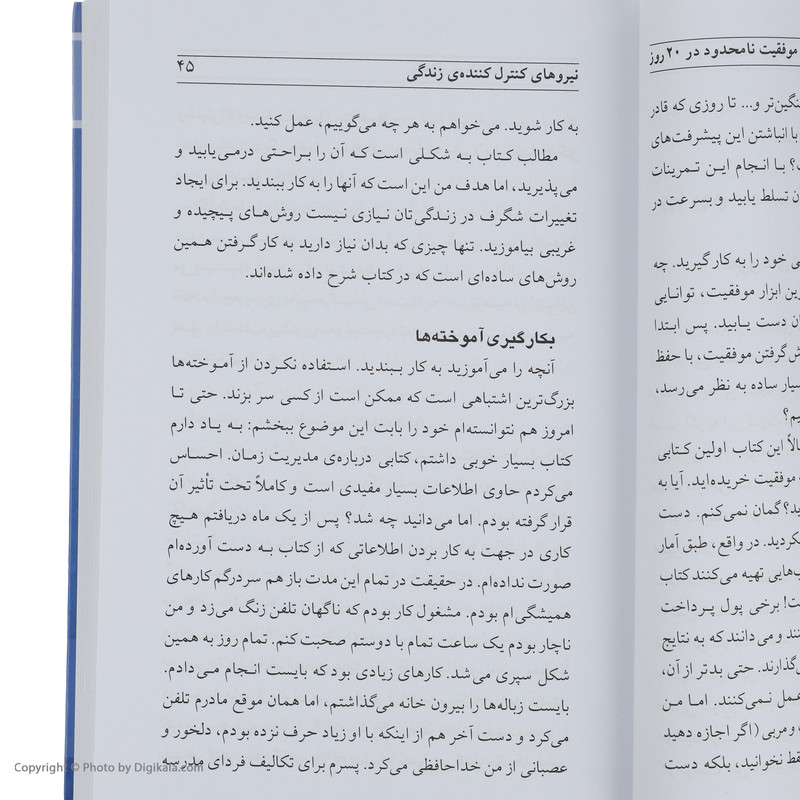 موفقیت نامحدود در ۲۰ روز
نگین‌تر و... تا روزی که قادر
با انباشتن این پیشرفت‌های
؟ با انجام این تمرینات
تسلط یابید و بسرعت در
خود را به کار گیرید. چه
ین ابزار موفقیت، توانایی
دست یابید. پس ابتدا
گرفتن موفقیت، با حفظ
سیار ساده به نظر می‌رسد،
یم؟
این کتاب اولین کتابی
موفقیت خریده‌اید. آیا به
ید؟ گمان نمی‌کنم. دست
نکردید. در واقع، طبق آمار
تهیه می‌کنند کتاب
ت! برخی پول پرداخت
ند و می‌دانند که به نتایج
گذارند. حتی بدتر از آن،
عمل نمی‌کنند. اما من
و مربی (اگر اجازه دهید
نخوانید، بلکه دست
نیروهای کنترل کننده‌ی زندگی ۴۵
به کار شوید. می‌خواهم به هر چه می‌گوییم، عمل کنید.
مطالب کتاب به شکلی است که آن را براحتی درمی‌یابید و
می‌پذیرید، اما هدف من این است که آنها را به کار ببندید. برای ایجاد
تغییرات شگرف در زندگی‌تان نیازی نیست روش‌های پیچیده و
غریبی بیاموزید. تنها چیزی که بدان نیاز دارید به کار گرفتن همین
روش‌های ساده‌ای است که در کتاب شرح داده شده‌اند.
بکارگیری آموخته‌ها
آنچه را می‌آموزید به کار ببندید. استفاده نکردن از آموخته‌ها
بزرگ‌ترین اشتباهی است که ممکن است از کسی سر بزند. حتی تا
امروز هم نتوانسته‌ام خود را بابت این موضوع ببخشم: به یاد دارم
کتاب بسیار خوبی داشتم، کتابی درباره‌ی مدیریت زمان. احساس
می‌کردم حاوی اطلاعات بسیار مفیدی است و کاملاً تحت تأثیر آن
قرار گرفته بودم. اما می‌دانید چه شد؟ پس از یک ماه دریافتم هیچ
کاری در جهت به کار بردن اطلاعاتی که از کتاب به دست آورده‌ام
صورت نداده‌ام. در حقیقت در تمام این مدت باز هم سردرگم کارهای
همیشگی‌ام بودم. مشغول کار بودم که ناگهان تلفن زنگ می‌زد و من
ناچار بودم یک ساعت تمام با دوستم صحبت کنم. تمام روز به همین
شکل سپری می‌شد. کارهای زیادی بود که بایست انجام می‌دادم.
بایست زباله‌ها را بیرون خانه می‌گذاشتم، اما همان موقع مادرم تلفن
می‌کرد و دست آخر هم از اینکه با او زیاد حرف نزده بودم، دلخور و
عصبانی از من خداحافظی می‌کرد. پسرم برای تکالیف فردای مدرسه
Copyright © Photo by Digikala.com